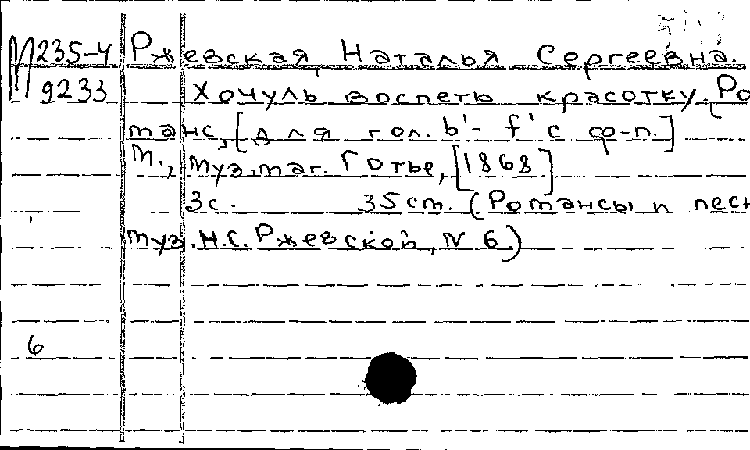 М235-4 Ржевская, Наталья Сергеевна.
9233 Хочуль воспеть красотку. Ро
манс, [для гол. b'- f' с ф-п.]
М., муз. маг. Готье, [1868]
3с. 35 ст. (Романсы и песн
муз. Н.С. Ржевской, N 6)
6